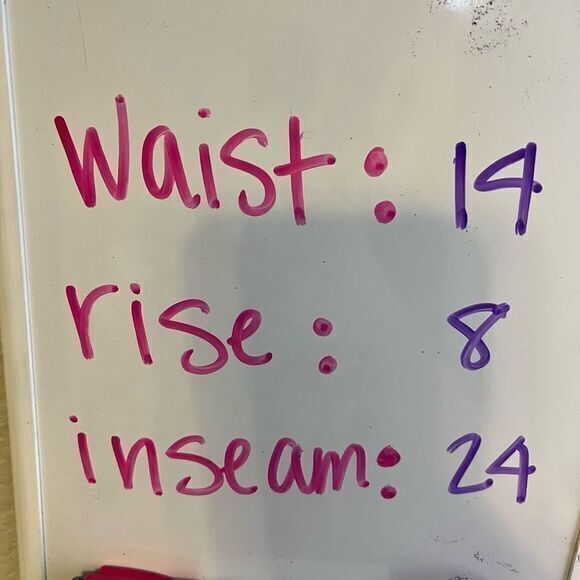 Waist: 14
rise: 8
inseam: 24